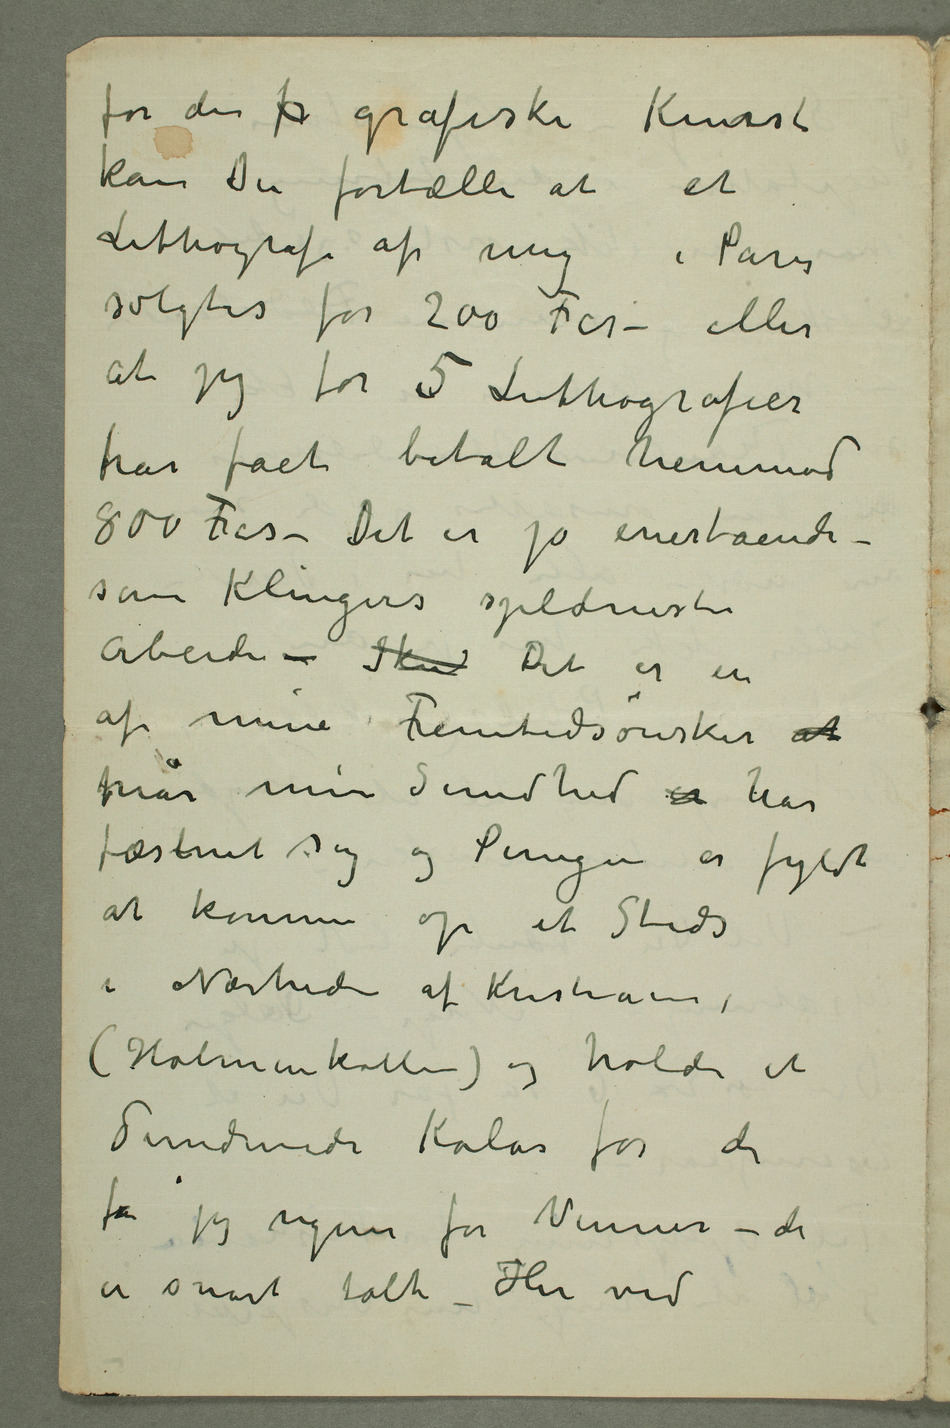 for den fr grafiske Kunst
kan Du fortælle at et
Lithografi af mig i Paris
solgtes for 200 Fcs – eller
at jeg for 5 Lithografier
har fået betalt henimod
800 Fcs – Det er jo enestående –
som Klingers sjeldneste
Arbeide – Skul Det er en
af mine Fremtidsönsker at
når min Sundhed er har
fæstnet sig og Pungen er fyldt
at komme op et Steds
i Nærheden af Kristiania,
(Holmenkollen) og holde et
Dundrende Kalas for de
få jeg regner for Venner – de
er snart talt – Her ved